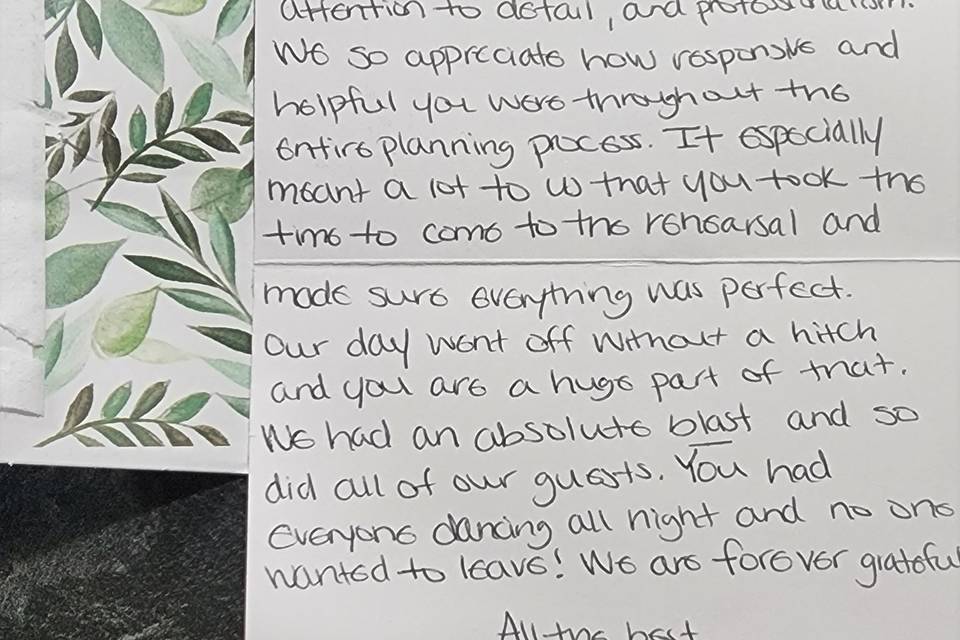 attention to detail, and professionalism.
We so appreciate how responsive and
helpful you were throughout the
entire planning process. It especially
meant a lot to us that you took the
time to come to the rehearsal and
made sure everything was perfect.
Our day went off without a hitch
and you are a huge part of that.
We had an absolute blast and so
did all of our guests. You had
everyone dancing all night and no one
wanted to leave! We are forever grateful
All the best